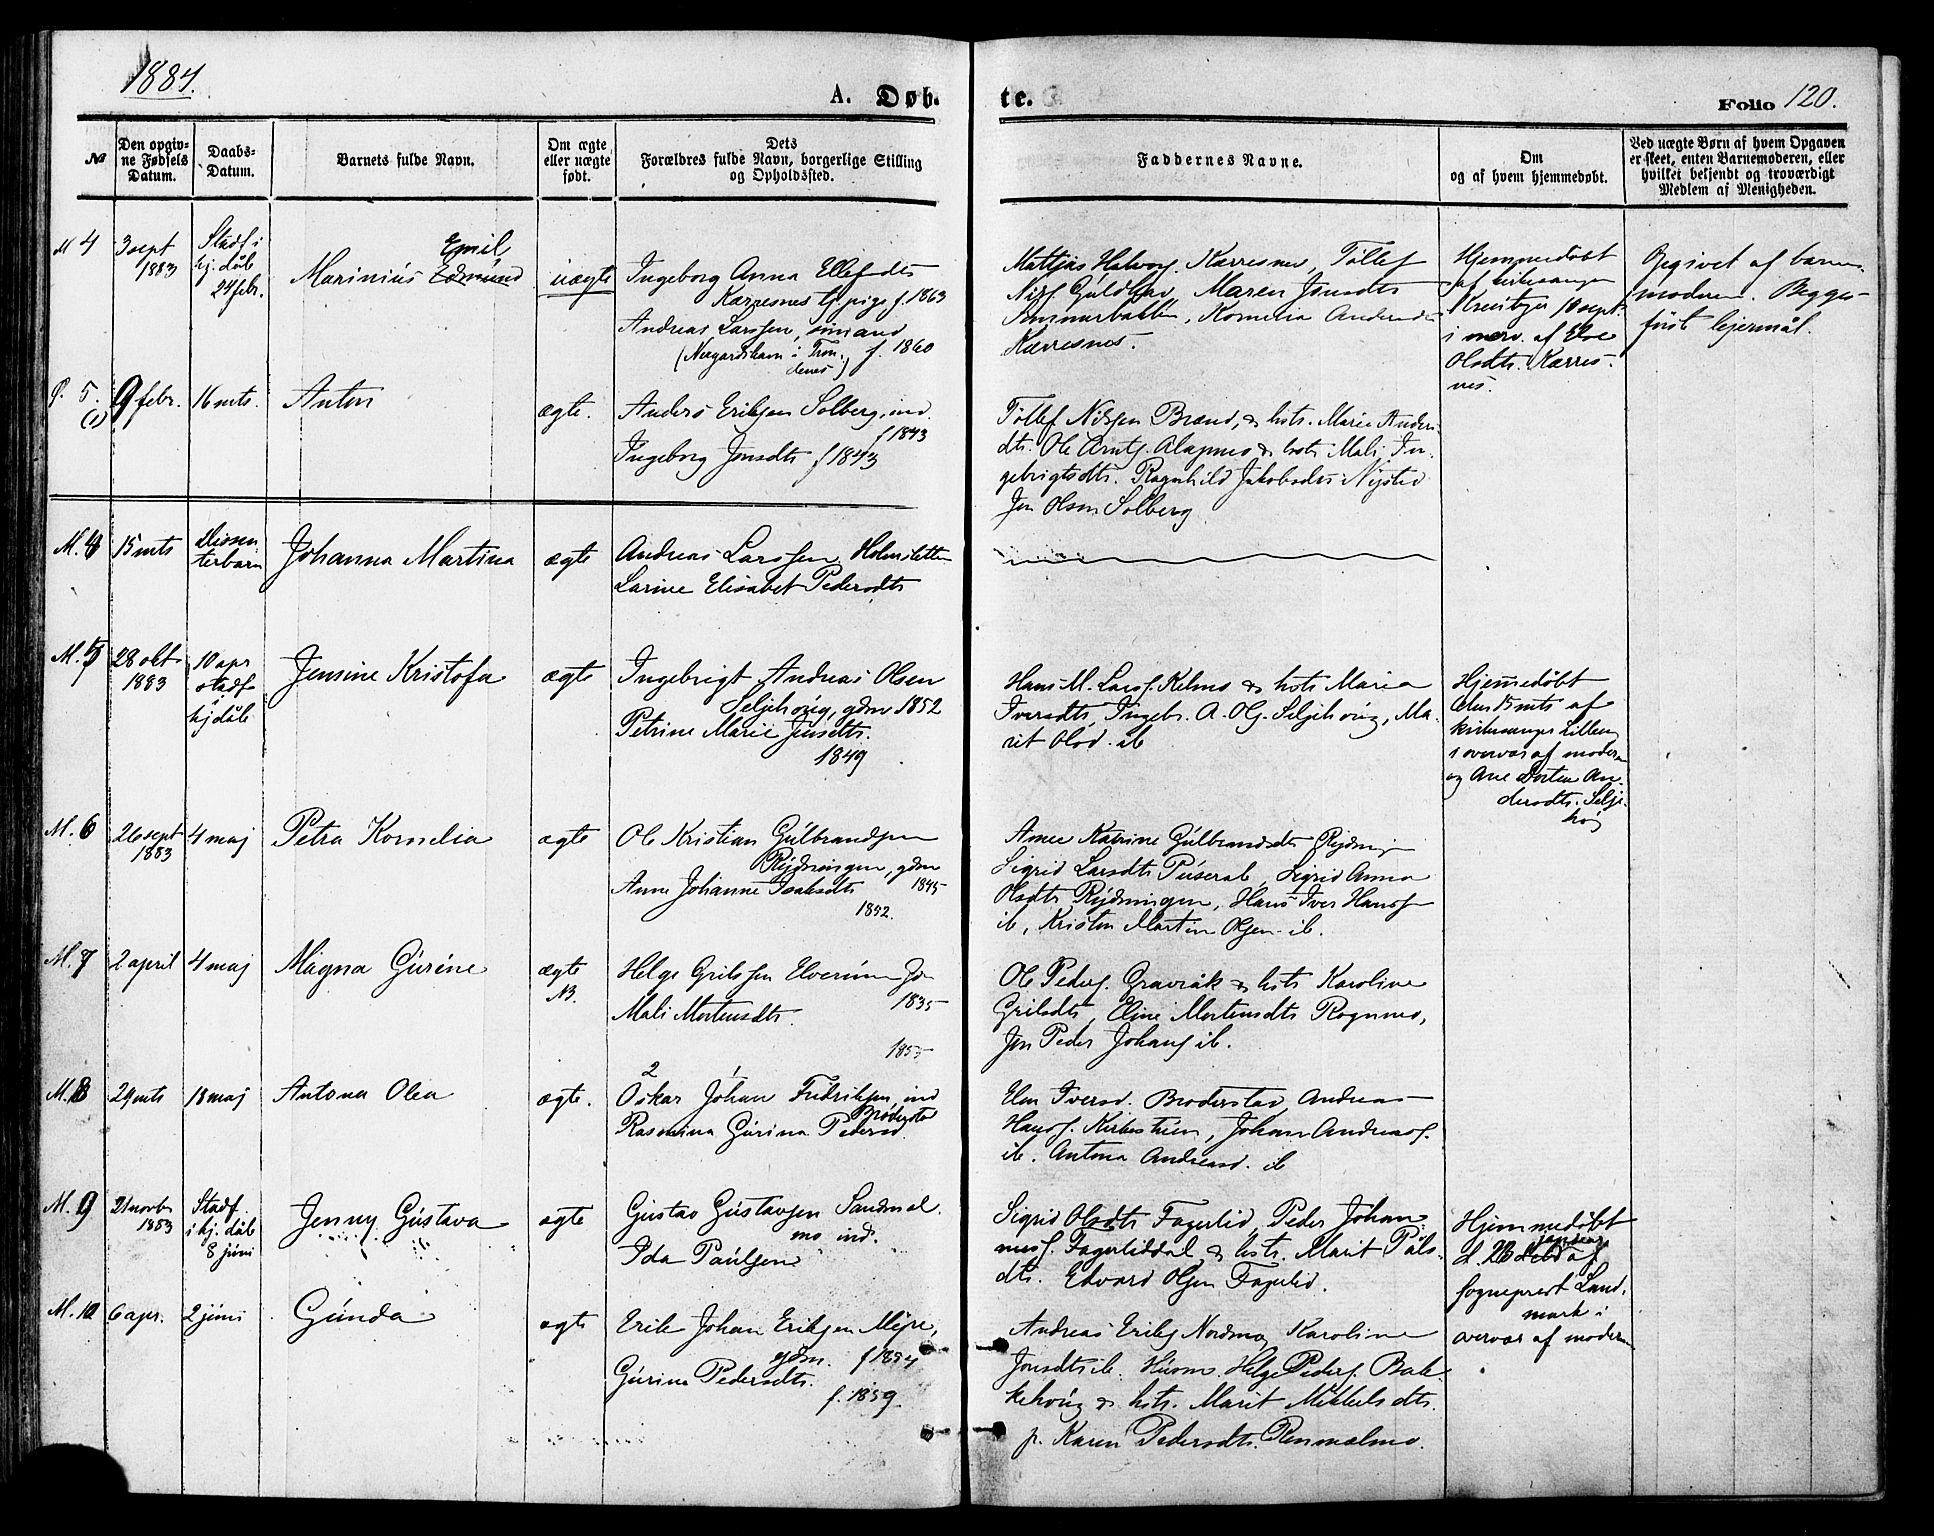 1884.
A. Døb-
te.
Folio 120.
No
Den opgiv-
ne Fødsels
Datum.
Daabs-
Datum.
Barnets fulde Navn.
Om ægte
eller uægte
født.
Dets
Forældres fulde Navn, borgerlige Stilling
og Opholdssted.
Faddernes Navne.
Om
og af hvem hjemmedøbt.
Ved uægte Børn af hvem Opgaven
er skeet, enten Barnemoderen, eller
hvilket bekjendt og troværdigt
Medlem af Menigheden.
M 4
3 sept
1883
Stadf i
hj. dåb
24 febr.
Emil
Marinius Edmund
uægte
Ingeborg Anna Ellefsdts
Kærresnes tj. pige f. 1863
Andreas Larssen,
f. 1860
Kærresnes, Tollef
Maren Jonsdts
Kornelia
Kærresnes.
Hjemmedøbt
af kirkesanger
sept.
i nærv. af
Olsdts. Kærres-
nes.
Opgivet af barne-
moderen. Begges
først lejermål.
5.
(1)
9 febr.
16 mts.
Anton
ægte.
Anders Eriksen Solberg, ind.
f 1843
Ingeborg Jonsdts f 1843
Tollef Nilsen Brænd, & hsts. Marie Anders-
dts. Ole Arntz. Alapmo & hsts Mali In-
gebrigtsdts. Ragnhild Jakobsdts Nysted
Jon Olsen Solberg
M. 4
15 mts
Dissen-
terbarn
Johanna Martina
ægte
Andreas Larssen Holmsletten
Larine Elisabet Pedersdts
M. 5
28 okt
1883
10 apr
stadf
hjdåb
Jensine Kristofa
ægte
Ingebrigt Andreas Olsen
Seljehoug, gdm 1852
Petrine Marie Jensdts.
1849
Hans M. Larsf. Kelmo & hsts Maria
Iversdts, Ingebr. A. Ols. Seljehoug, Ma-
rit Olsd. ib
Hjemmedøbt
15 mts af
kirkesanger
i overvær af moderen
og Ane Dortea An-
dersdts. Selje-
houg
M. 6
26 sept
1883
4 maj
Petra Kornelia
ægte
Ole Kristian Gulbrandsen
Rydningen, gdm
1845
Anne Johanne Isaksdts
1852.
Anne Katrine Gulbrandsdts Rydning
Sigrid Larsdts, Sigrid Anna
Olsdts Rydningen, Hans Iver Hansf
ib, Kristen Martin Olsen ib.
M. 7
2 april
4 maj
Magna Gurine
ægte
NB.
Helge Grilssen Elverum
1835
Mali Mortensdts.
1855
Ole Pedersf. Gravråk & hsts Karoline
Grilsdts, Eline Mortensdts Rognmo,
Jon Peder Johansf ib.
M. 8
29 mts
18 maj
Antona Olea
ægte.
2 1
Oskar Johan Fredriksen, ind
Brøderstad
Rasmina Gurina Pedersd.
Elen Iversd. Broderstad, Andreas
Hansf., Johan Andreasf.
ib. Antona Andreasd. ib
M. 9
21 novbr
1883
Stadf.
i hj. dåb
8 juni
Jenny Gustava
ægte
Gustav Gustavsen Sandmæl-
mo ind.
Ida Paulsen
Sigrid Olsdts Fagerlid, Peder Johan-
nesf. Fagerliddal & hsts. Marit Påls-
dts. Edvard Olsen Fagerlid.
Hjemmedøbt
d. 26 af
sogneprest Land-
mark i
overvær af moderen
M. 10
6 apr.
2 juni
Gunda
ægte
Erik Johan Eriksen Mejre,
gdm. f 1854
Gurine Pedersdts.
f. 1859
Andreas Eriks Nordmo, Karoline
Jonsdts ib. Husm. Helge Peders. Bak-
kehoug & hsts. Marit Mikkelsdts.
p. Karen Pedersdts. Renmælmo.